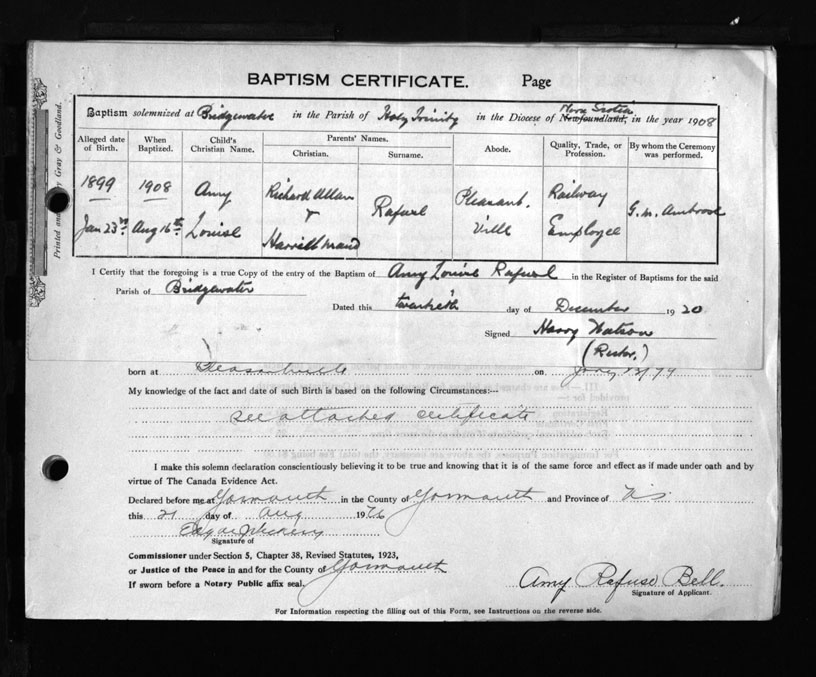 BAPTISM CERTIFICATE. Page
Baptism solemnized at Bridgewater in the Parish of Holy Trinity in the Diocese of Newfoundland, Nova Scotia in the year 1908
Alleged date of Birth. When Baptized. Child's Christian Name. Parents' Names. Christian. Surname. Abode. Quality, Trade, or Profession. By whom the Ceremony was performed.
1899 1908 Amy Richard Allan Rafuse Pleasant. Railway G. M. Ambrose
Jan 23rd Aug 16th Louise & Harriett Maud Ville Employee
I Certify that the foregoing is a true Copy of the entry of the Baptism of Amy Louise Rafuse in the Register of Baptisms for the said
Parish of Bridgewater
Dated this twentieth day of December 1920
Signed Harry Watson
(Rector.)
Printed and by Gray & Goodland.
born at Pleasantville on
My knowledge of the fact and date of such Birth is based on the following Circumstances:—
see attached certificate
I make this solemn declaration conscientiously believing it to be true and knowing that it is of the same force and effect as if made under oath and by
virtue of The Canada Evidence Act.
Declared before me at Yarmouth in the County of Yarmouth and Province of N.S.
this 21 day of Aug 19
Signature of
Commissioner under Section 5, Chapter 38, Revised Statutes, 1923,
or Justice of the Peace in and for the County of Yarmouth
If sworn before a Notary Public affix seal.
Amy Rafuse Bell.
Signature of Applicant.
For Information respecting the filling out of this Form, see Instructions on the reverse side.